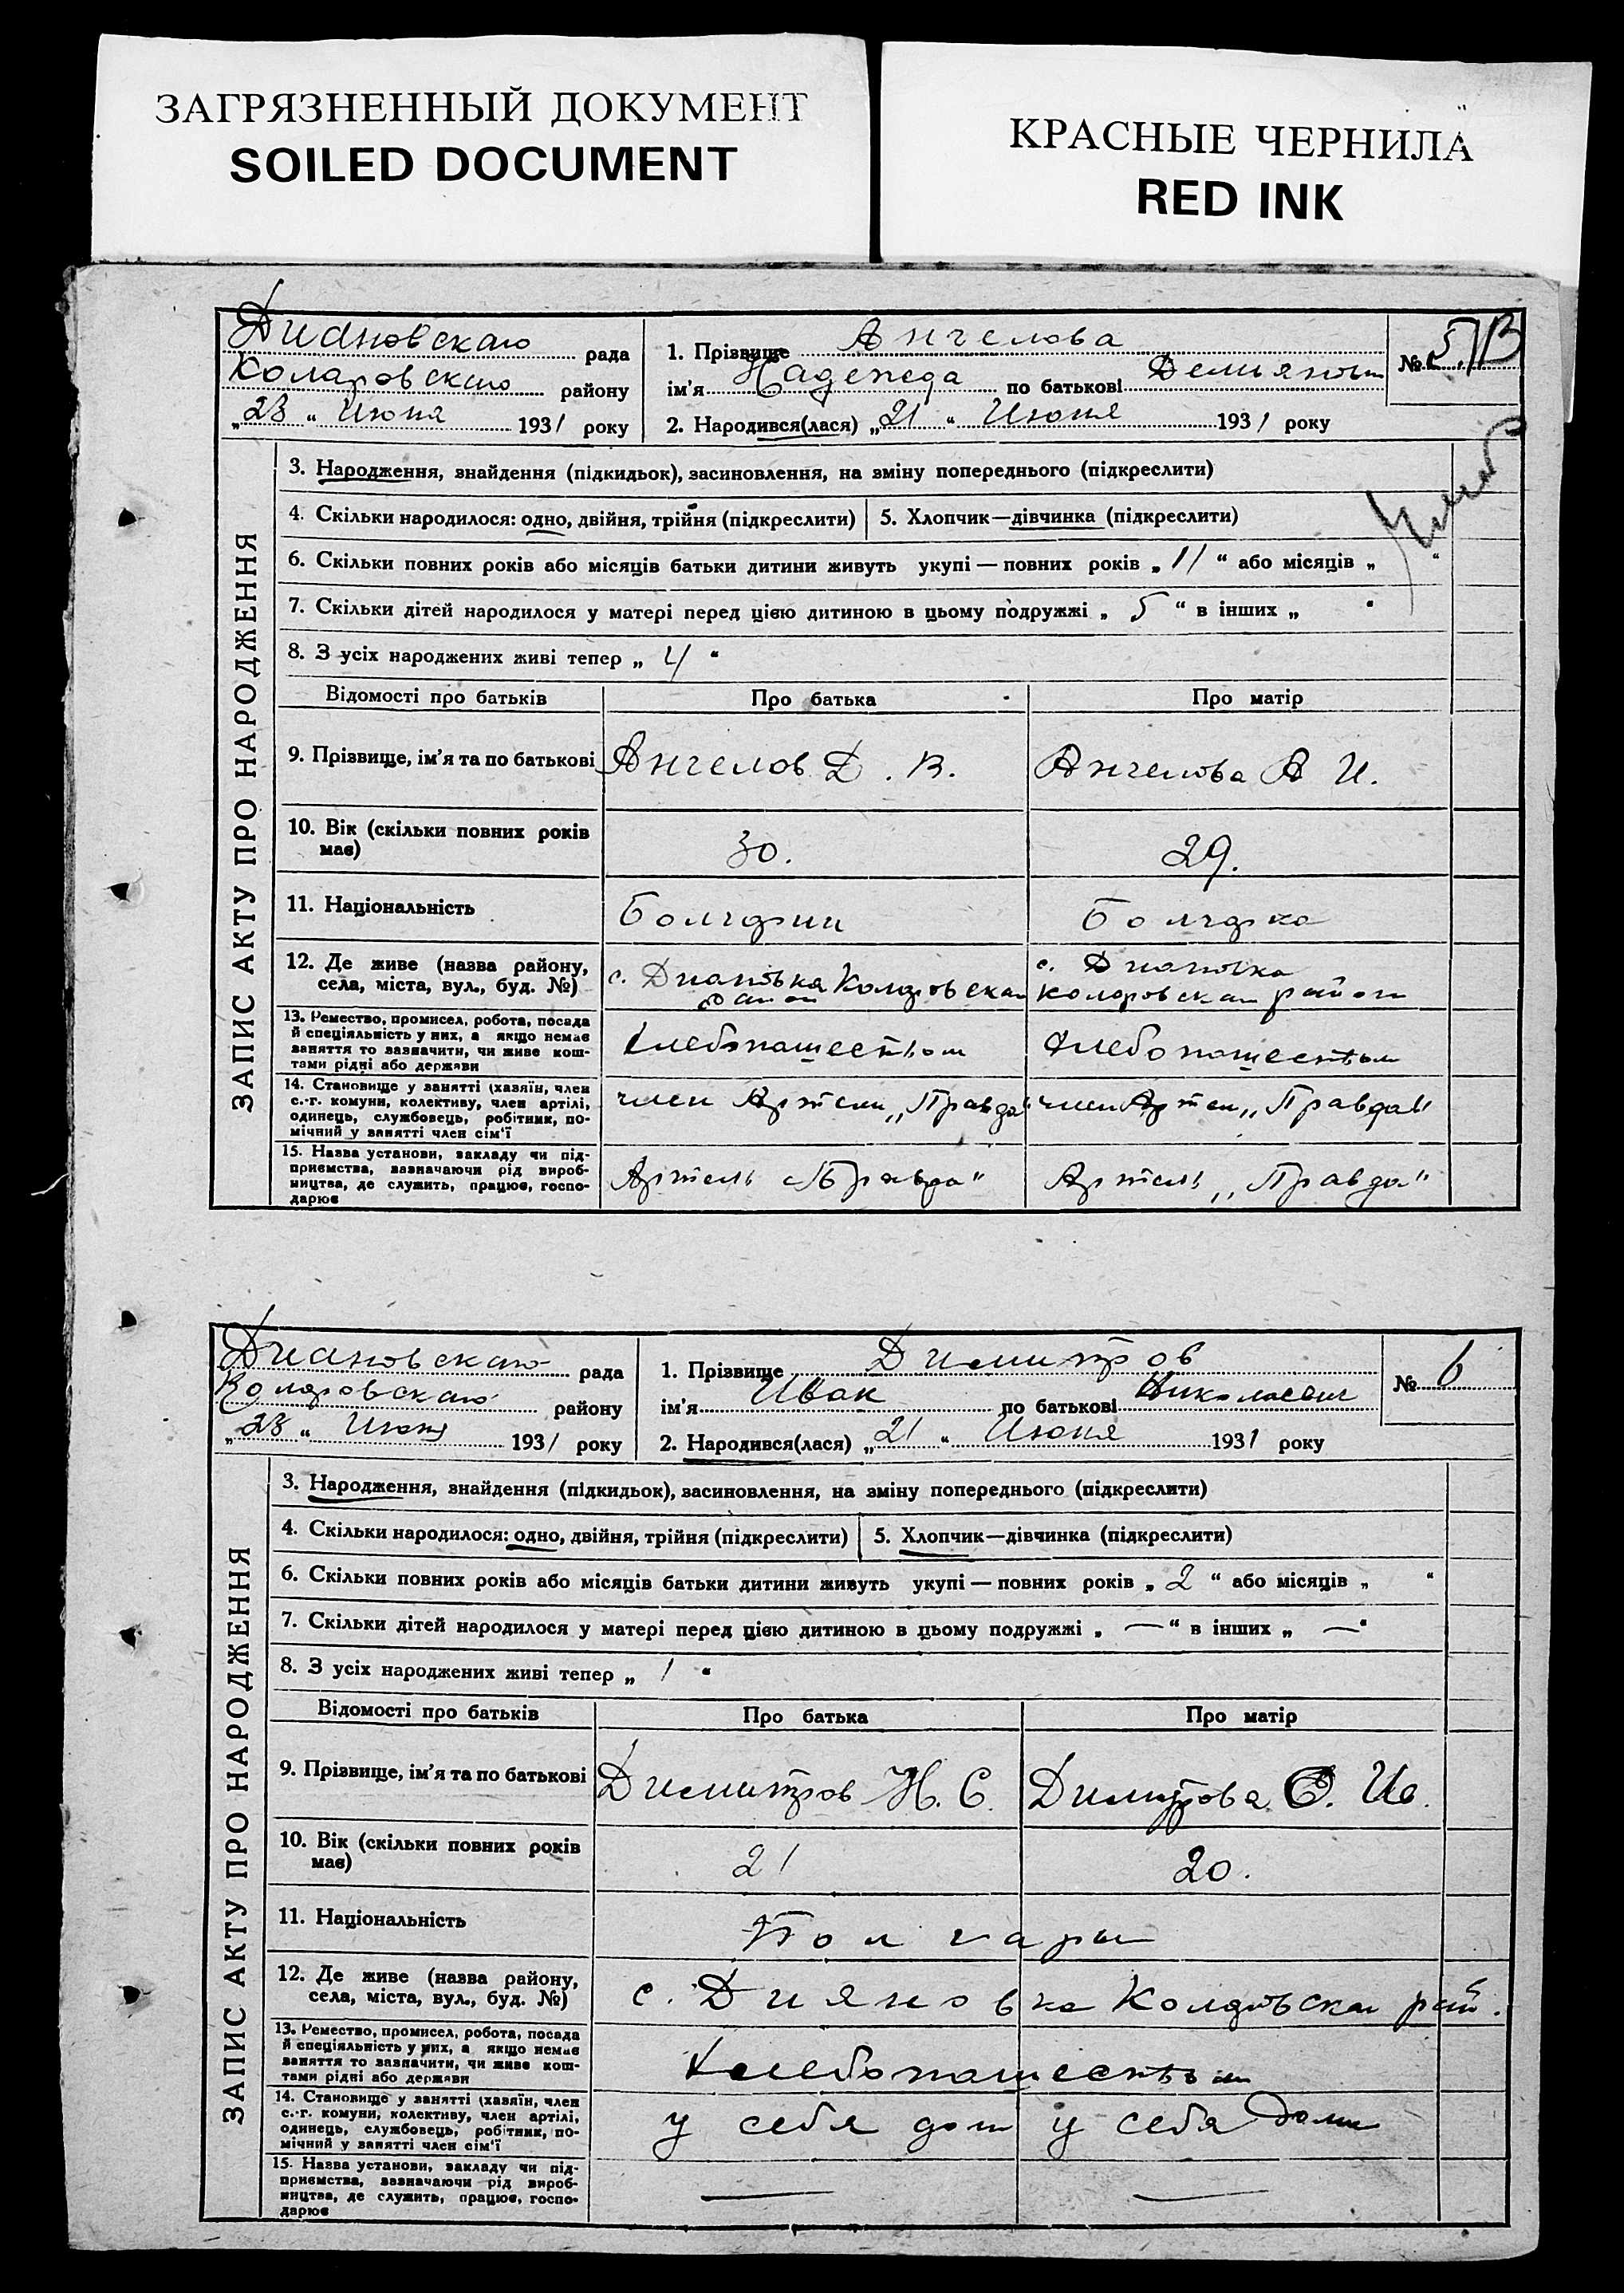 ЗАГРЯЗНЕННЫЙ ДОКУМЕНТ
SOILED DOCUMENT
КРАСНЫЕ ЧЕРНИЛА
RED INK
Дияновскаго рада
Коларовскаго району
„23“ Июня 1931 року
1. Прізвище Ангелова
ім’я Надежда по батькові
2. Народився(лася) „21“ Июня 1931 року
№ 5.
ЗАПИС АКТУ ПРО НАРОДЖЕННЯ
3. Народження, знайдення (підкидьок), засиновлення, на зміну попереднього (підкреслити)
4. Скільки народилося: одно, двійня, трійня (підкреслити) 5. Хлопчик—дівчинка (підкреслити)
6. Скільки повних років або місяців батьки дитини живуть укупі — повних років „11“ або місяців „ “
7. Скільки дітей народилося у матері перед цією дитиною в цьому подружжі „5“ в інших „ “
8. З усіх народжених живі тепер „4“
Відомості про батьків Про батька Про матір
9. Прізвище, ім’я та по батькові Ангелов Д. В. Ангелова А И.
10. Вік (скільки повних років
має) 30. 29.
11. Національність Болгарин Болгарка
12. Де живе (назва району,
села, міста, вул., буд. №) с. Дияновка
район с. Дияновка
район
13. Ремество, промисел, робота, посада
й спеціяльність у них, а якщо немає
заняття то зазначити, чи живе кош-
тами рідні або держави Хлебопашеством Хлебопашеством
14. Становище у занятті (хазяїн, член
с.-г. комуни, колективу, член артілі,
одинець, службовець, робітник, по-
мічний у занятті член сім’ї член Артели „Правда“ член „Правда“
15. Назва установи, закладу чи під-
приємства, зазначаючи рід вироб-
ництва, де служить, працює, госпо-
дарює Артель „Правда“ Артель „Правда“
Дияновскаго рада
Коларовскаго району
„23“ Июня 1931 року
1. Прізвище Димитров
ім’я Иван по батькові Николаевич
2. Народився(лася) „21“ Июня 1931 року
№ 6
ЗАПИС АКТУ ПРО НАРОДЖЕННЯ
3. Народження, знайдення (підкидьок), засиновлення, на зміну попереднього (підкреслити)
4. Скільки народилося: одно, двійня, трійня (підкреслити) 5. Хлопчик—дівчинка (підкреслити)
6. Скільки повних років або місяців батьки дитини живуть укупі — повних років „2“ або місяців „ “
7. Скільки дітей народилося у матері перед цією дитиною в цьому подружжі „—“ в інших „—“
8. З усіх народжених живі тепер „1“
Відомості про батьків Про батька Про матір
9. Прізвище, ім’я та по батькові Димитров Н. С. Димитрова Е. Ив.
10. Вік (скільки повних років
має) 21 20.
11. Національність Болгары
12. Де живе (назва району,
села, міста, вул., буд. №) с. Дияновка
13. Ремество, промисел, робота, посада
й спеціяльність у них, а якщо немає
заняття то зазначити, чи живе кош-
тами рідні або держави Хлебопашеством
14. Становище у занятті (хазяїн, член
с.-г. комуни, колективу, член артілі,
одинець, службовець, робітник, по-
мічний у занятті член сім’ї у себя дома у себя дома
15. Назва установи, закладу чи під-
приємства, зазначаючи рід вироб-
ництва, де служить, працює, госпо-
дарює — —